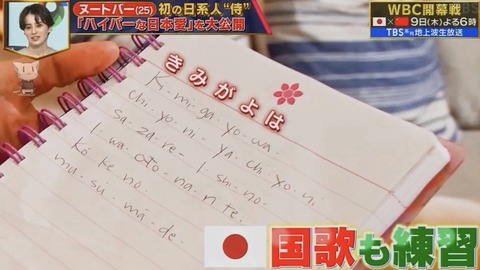 ヌートバー(25) 初の日系人"侍"
「ハイパーな日本愛」を大公開
WBC開幕戦
9日(木)よる6時
TBS系列地上波生放送
きみがよは
Ki. mi. ga. yo. wa.
chi. yo. ni. ya. chi. yo. ni.
sa. za. re. I. shi. no.
I. wa. oto. na. n. te.
ko. ke. no.
mu. su. ma. de.
国歌も練習